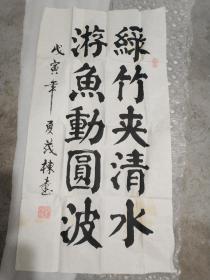 綠竹夾清水
游魚動圓波
戊寅年夏茂棟書